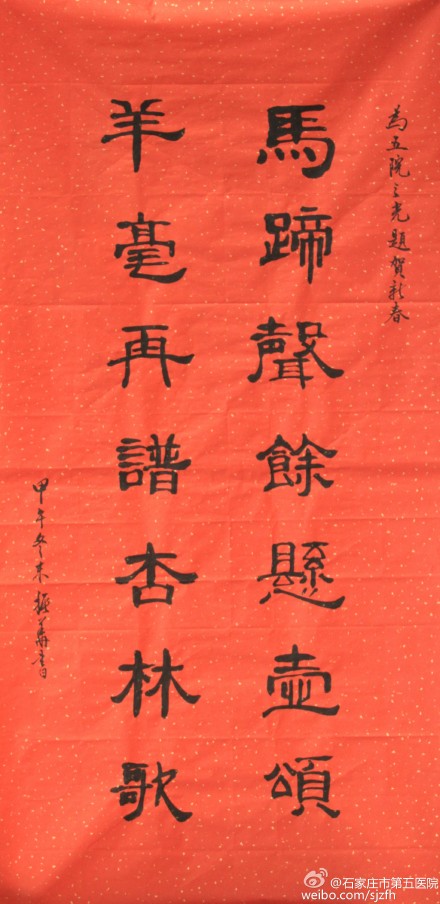 為五院之光題賀新春
馬蹄聲餘懸壺頌
羊毫再譜杏林歌
甲午冬末振華書
@石家庄市第五医院
weibo.com/sjzfh